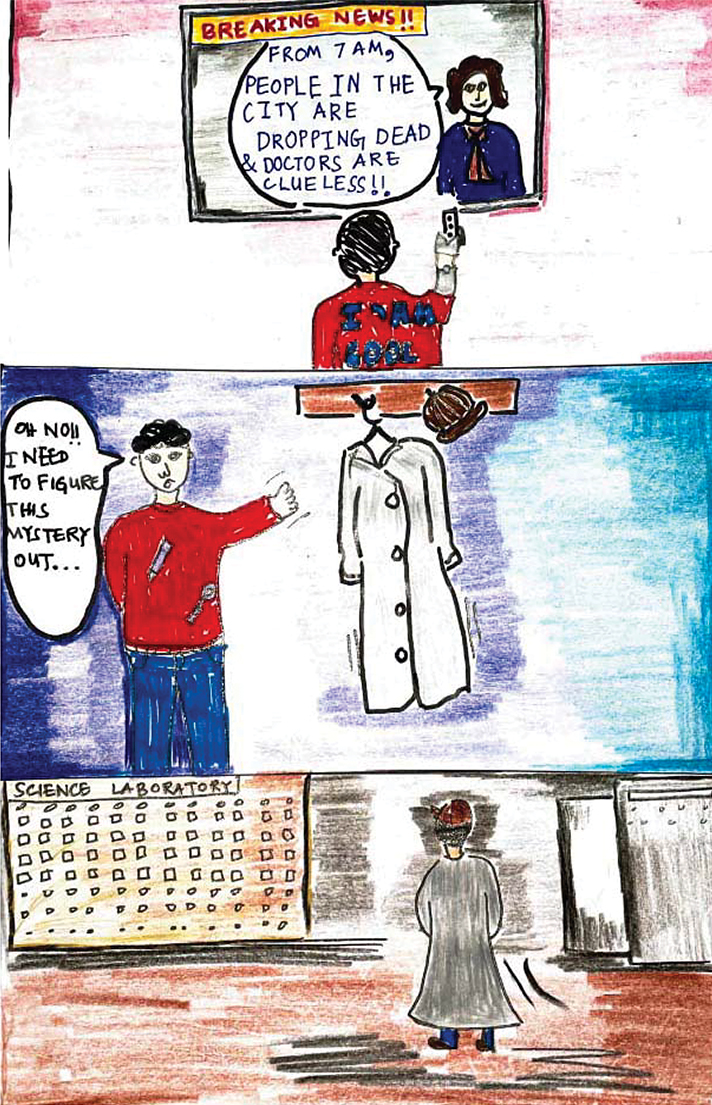 BREAKING NEWS!!
FROM 7 AM,
PEOPLE IN THE
CITY ARE
DROPPING DEAD
& DOCTORS ARE
CLUELESS!!
I AM
COOL
OH NO!!
I NEED
TO FIGURE
THIS
MYSTERY
OUT...
SCIENCE LABORATORY!